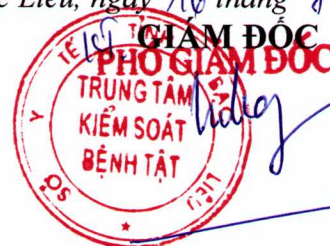 c Liêu, ngày 16 tháng
GIÁM ĐỐC
PHÓ GIÁM ĐỐC
SỞ Y TẾ TỈNH BẠC LIÊU
TRUNG TÂM
KIỂM SOÁT
BỆNH TẬT